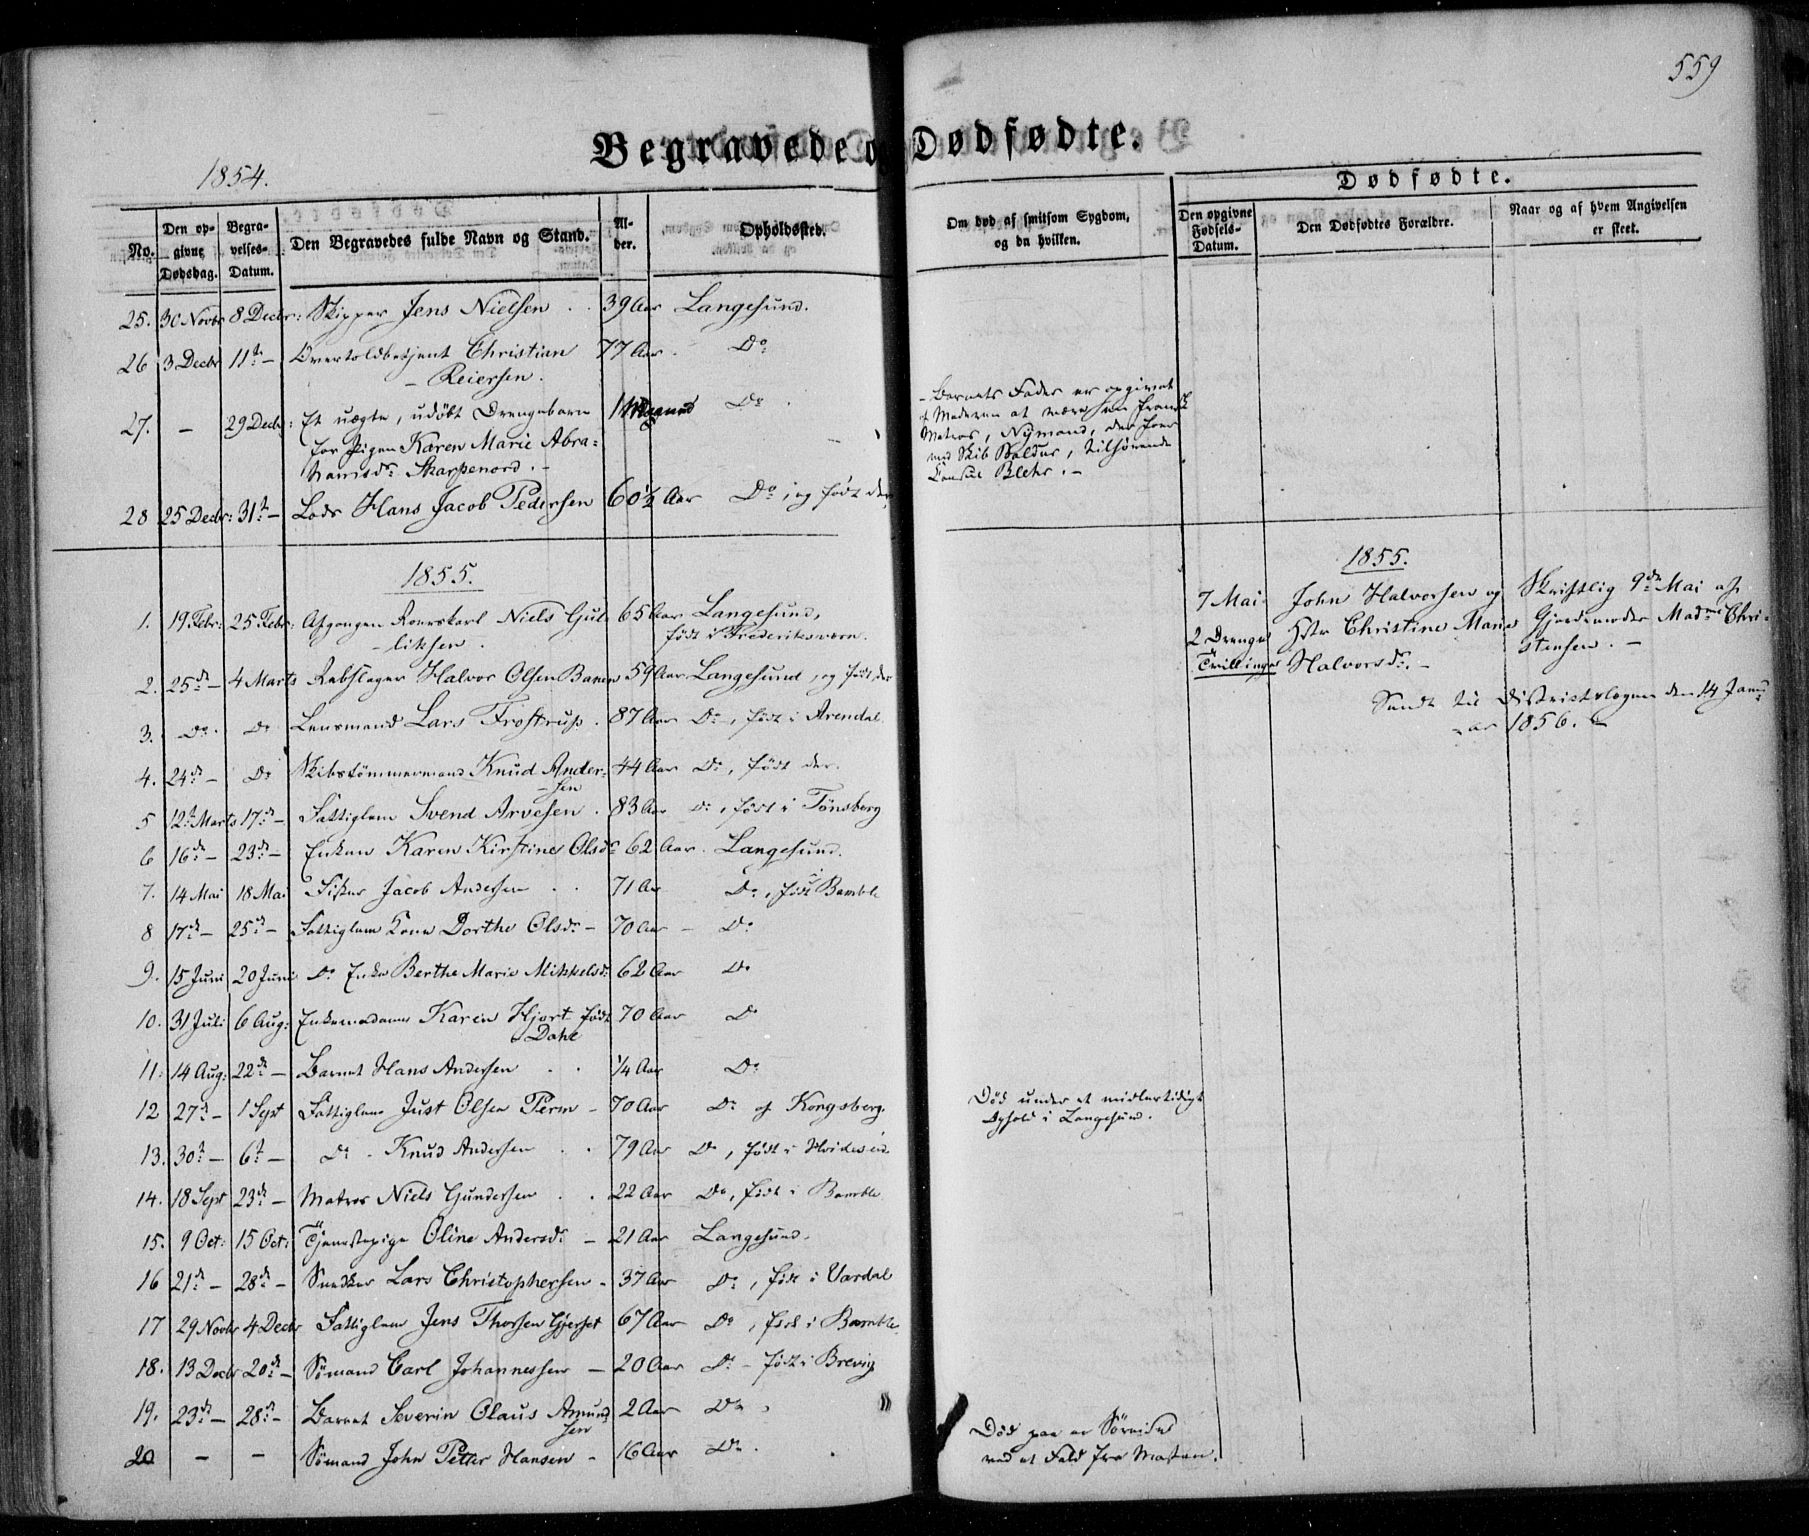 559
Begravede o Dødfødte.
1854.
Dødfødte.
No. Den opgivne Dødsdag. Begravelses-Datum. Den Begravedes fulde Navn og Stand. Alder. Opholdssted. Om død af smitsom Sygdom, og da hvilken. Den opgivne Fødsels-Datum. Den Dødfødtes Forældre. Naar og af hvem Angivelsen er skeet.
25. 30 Novbr 8 Decbr: Skipper Jens Nielsen 39 Aar Langesund.
26 3 Decbr 11te — Overtoldbetjent Christian 77 Aar Do
— Reiersen.
27. — 29 Decbr: Et uægte, udøbt Drengebarn 1 Do
for Pigen Karen Marie Abra=
hamsdr Skarpenord. —
— Barnets Fader er opgivet
af Moderen at være en fransk
Matros, Nymand, der foer
med Skib Baldur, tilhørende
Consul Blehr. —
28 25 Decbr: 31te — Lods Hans Jacob Pedersen 60½ Aar Do, og født der
1855.
1. 19 Febr: 25 Febr: Afgangen Roerskarl Niels Gul= 65 Aar Langesund,
— liksen. født i Frederiksværn.
2. 25de — 4 Marts Rebslager Halvor Olsen Banen 59 Aar Langesund, og født der
3. Do Do Lensmand Lars Frostrup. 87 Aar Do, født i Arendal
4. 24de — Do Skibstömmermand Knud Ander= 44 Aar Do, født der.
— sen
5 12te Marts 17de — Fattiglem Svend Arvesen. 83 Aar Do, født i Tönsberg
6 16de — 23de — Enken Karen Kirstine Olsdr 62 Aar. Langesund.
7. 14 Mai 18 Mai Fisker Jacob Andersen 71 Aar Do, født i Bamble
8 17de — 25de — Fattiglem Kone Dorthe Olsdr — 70 Aar — Do
9. 15 Juni 20 Juni Do Enke Berthe Marie Mikkelsdr 62 Aar Do
10. 31 Juli 6 Aug: Enkemadame Karen Hjort født 70 Aar Do
Dahl
11. 14 Aug: 22de — Barnet Hans Andersen ¼ Aar Do
12 27de — 1 Sept Fattiglem Just Olsen Perm — 70 Aar Do af Kongsberg. Död under et midlertidigt
Ophold i Langesund.
13. 30te — 6te — Do — Knud Andersen 79 Aar Do, født i Hvideseid
14. 18 Sept 23de — Matros Niels Gundersen 22 Aar Do, født i Bamble
15. 9 Oct: 15 Oct: Tjenestepige Oline Andersdr — 21 Aar Langesund.
16 21de — 28de — Snedker Lars Christophersen — 37 Aar Do, født i Vardal
17 29 Novbr 4 Decbr Fattiglem Jens Thorsen Gjerset 67 Aar Do, født i Bamble
18. 13 Decbr 20de — Sömand Carl Johannessen — 20 Aar Do — født i Brevig
19. 23de — 28de — Barnet Severin Olaus Amund 2 Aar Do
sen
20 — — Sömand John Petter Hansen — 16 Aar Do. Död paa en Söreise
ved et Fald fra Masten.
1855.
7 Mai John Halvorsen og Skriftlig 9de Mai af
2 Drenge Hstr Christine Marie Gjordemoder Madme Chri=
Tvillinger Halvorsdr. — stensen. —
Sendt til Districtslægen den 14 Janu=
ar 1856. —